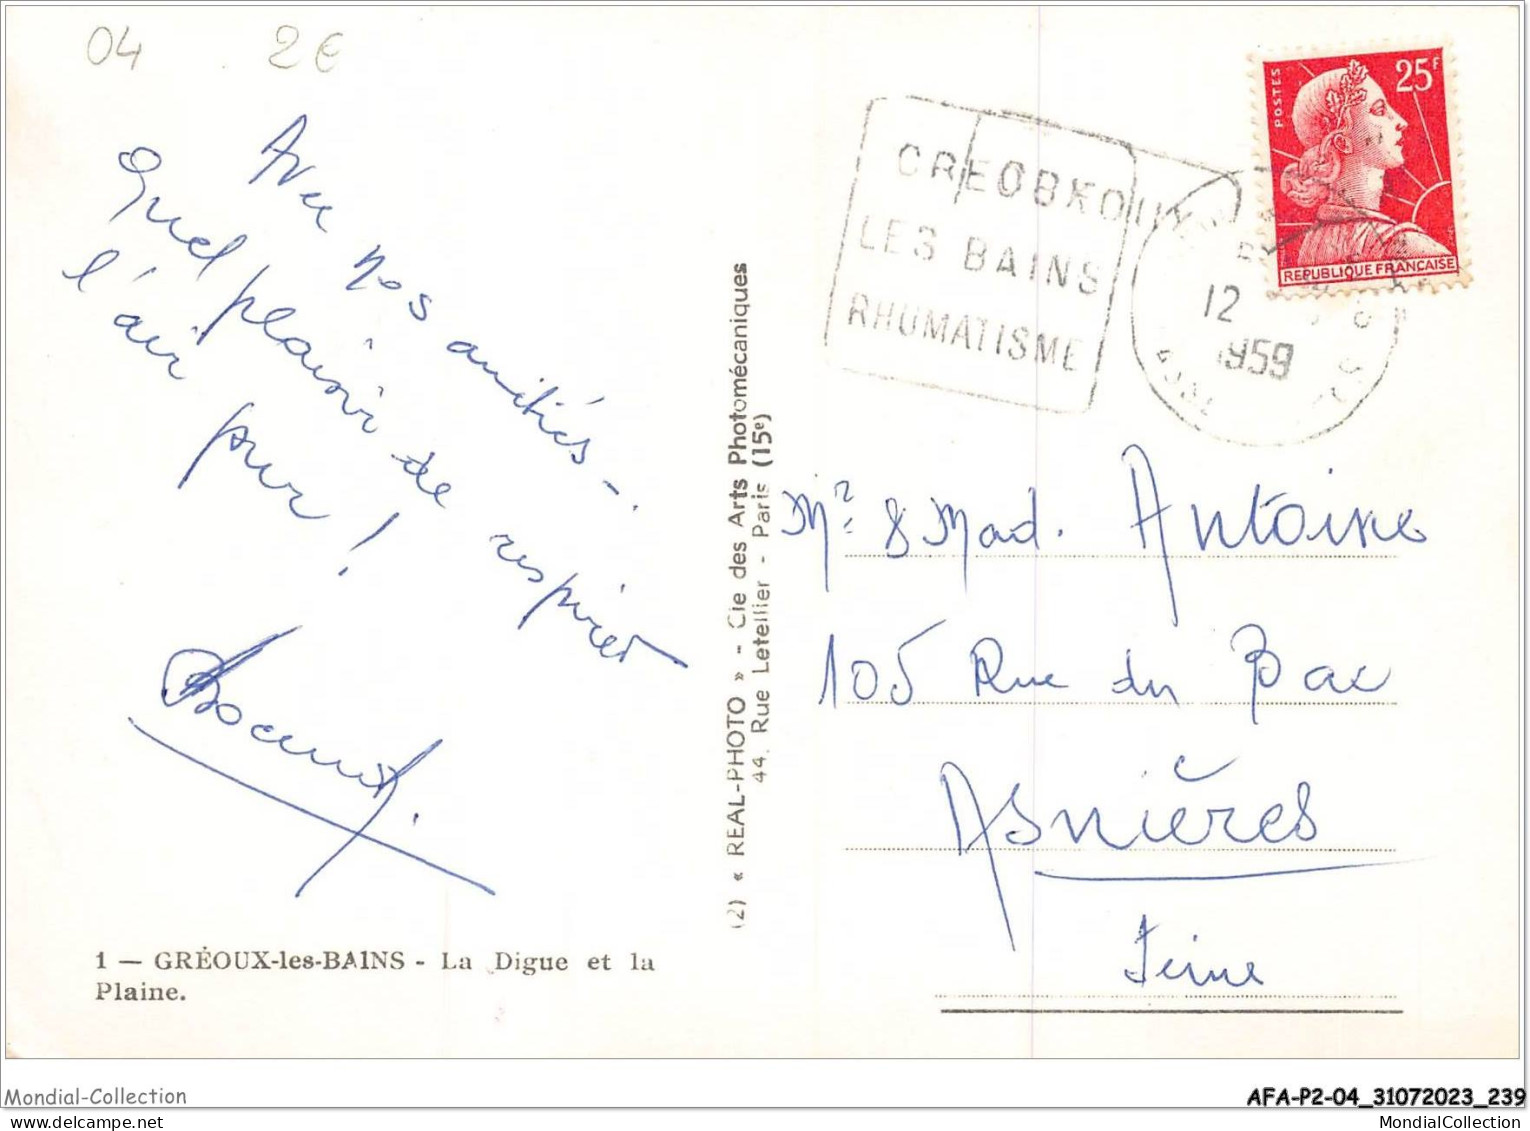 04 2€
Avec nos amitiés -.
Quel plaisir de respirer
l'air pur !
1 — GRÉOUX-les-BAINS - La Digue et la
Plaine.
(2) « REAL-PHOTO » - Cie des Arts Photomécaniques
44, Rue Letellier - Paris (15e)
LES BAINS
RHUMATISME
12
1959
POSTES
25F
REPUBLIQUE FRANÇAISE
Mr & Mad. Antoine
105 Rue du Bac
Asnières
Seine
Mondial-Collection
AFA-P2-04_31072023_239
MondialCollection.com